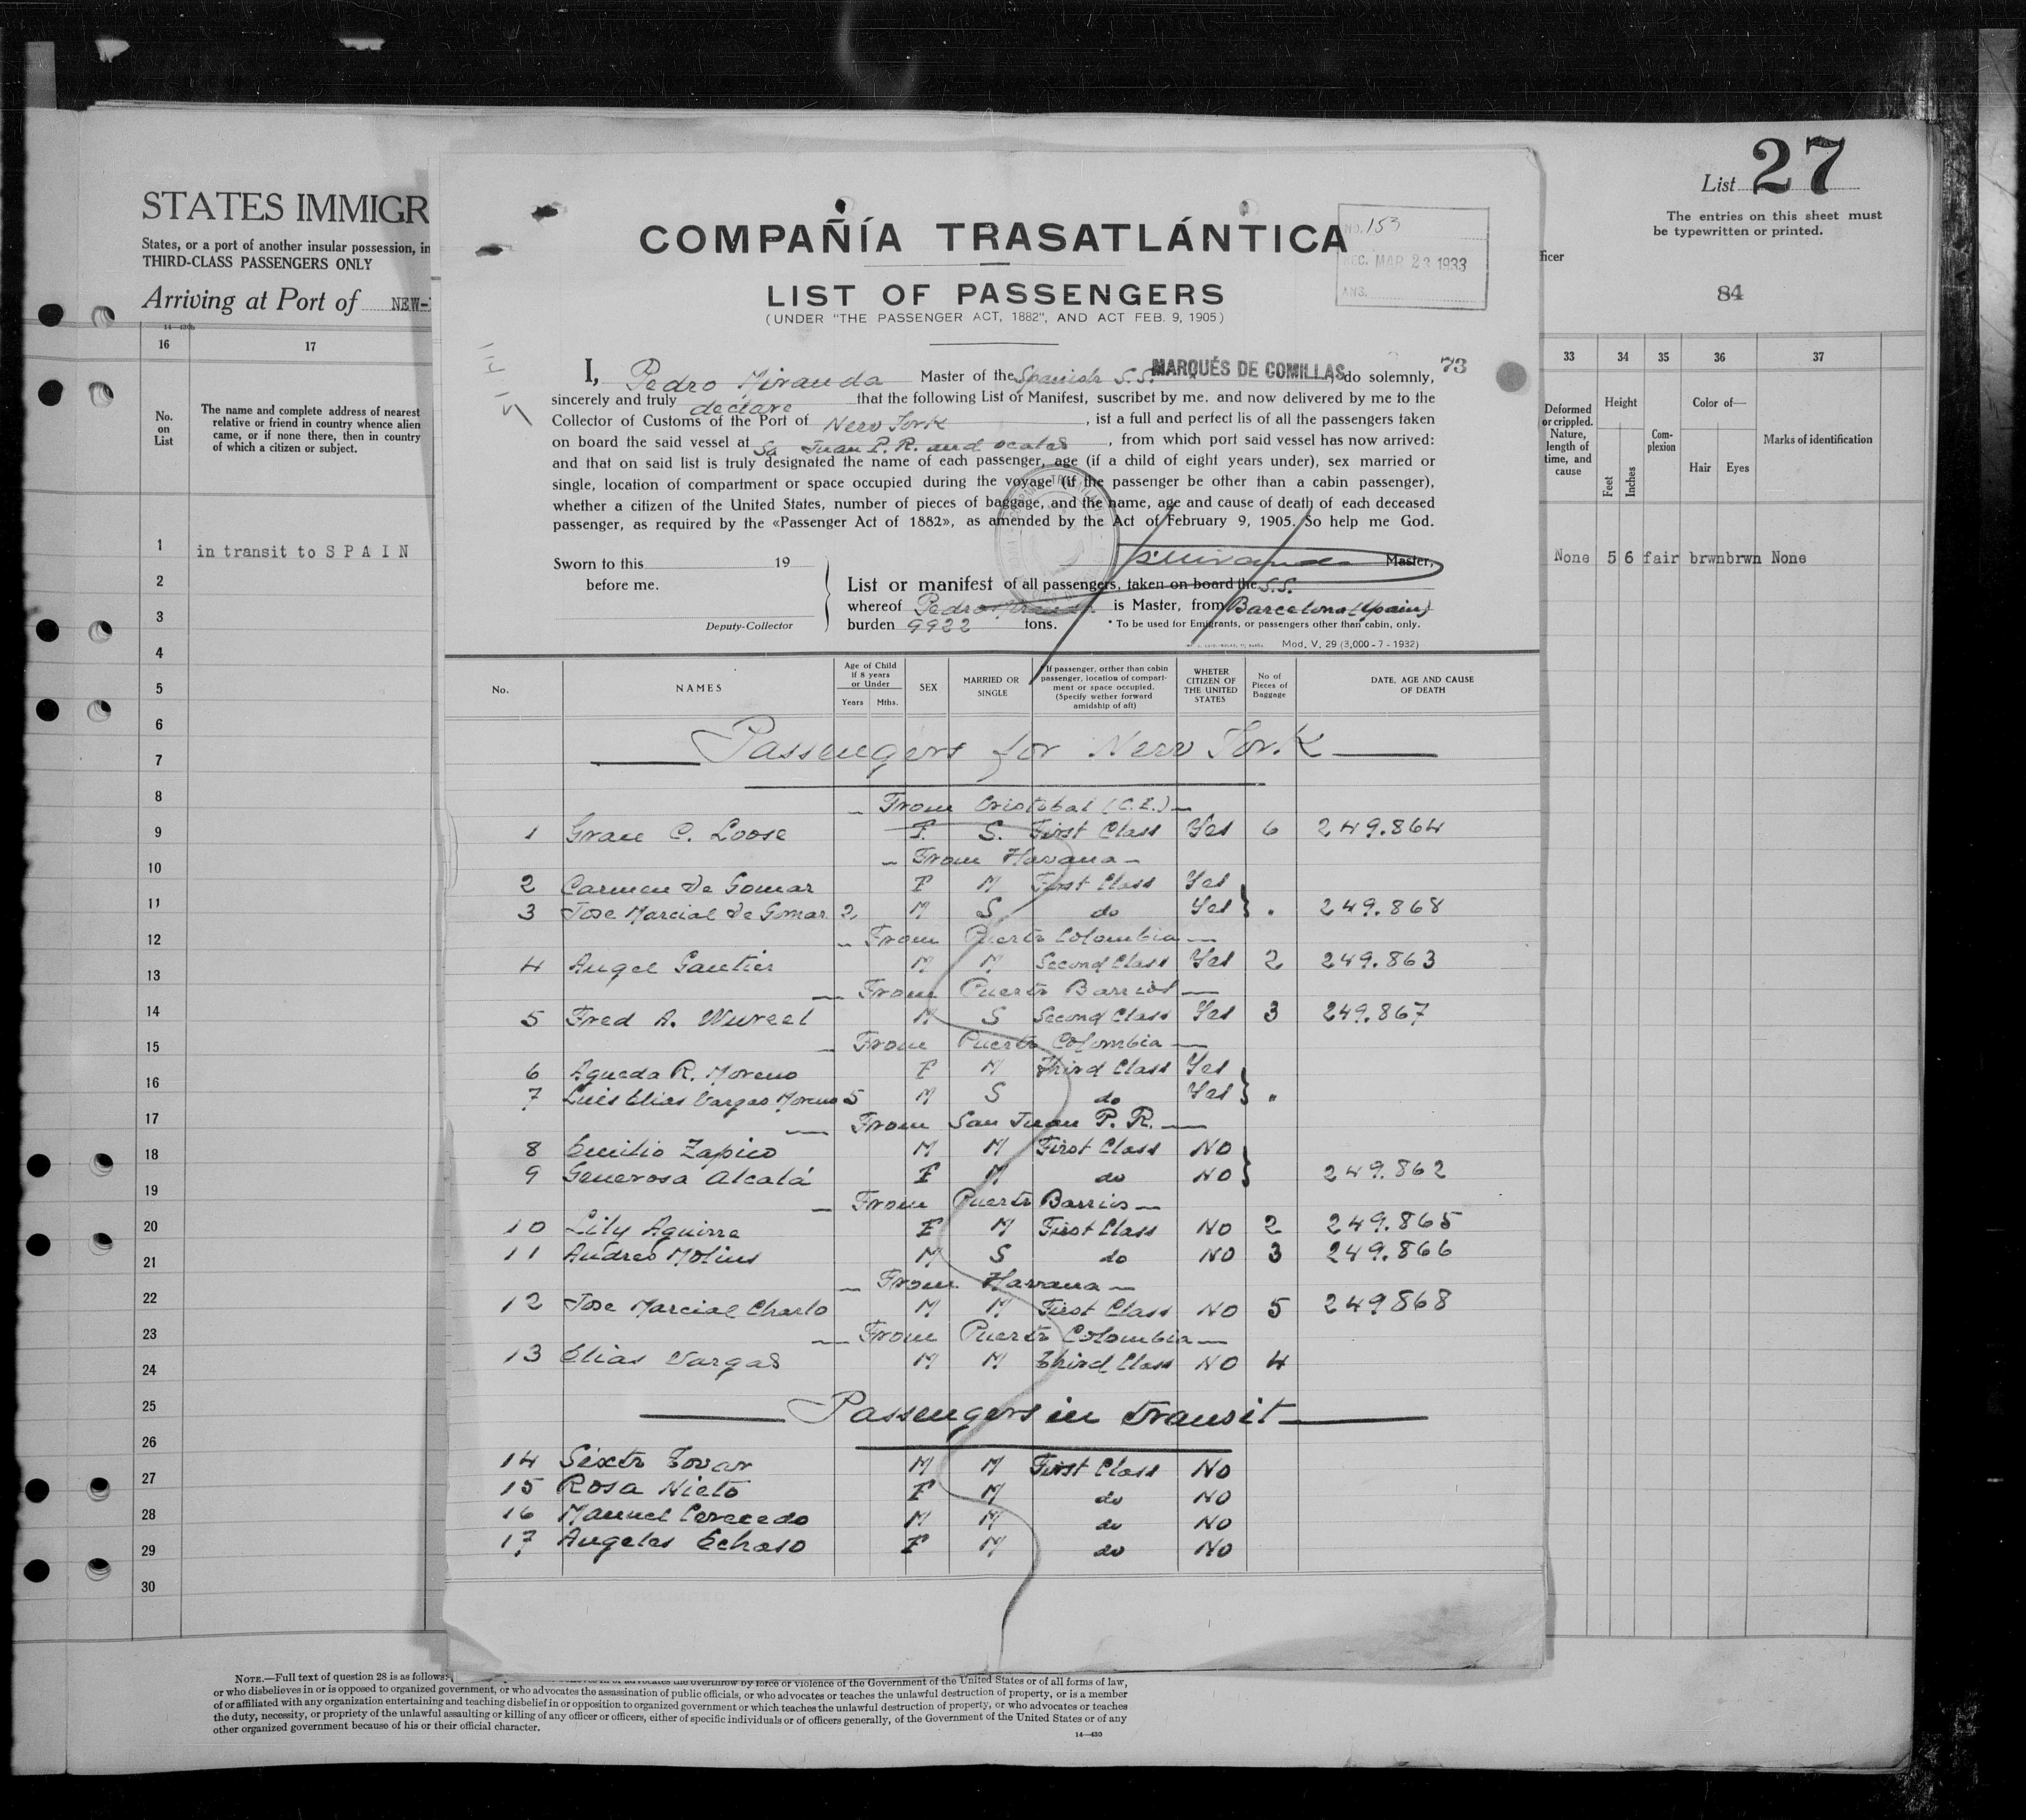 STATES IMMIGR
States, or a port of another insular possession, in
THIRD-CLASS PASSENGERS ONLY
Arriving at Port of NEW-
14—430b
16 17
No. on List
The name and complete address of nearest relative or friend in country whence alien came, or if none there, then in country of which a citizen or subject.
1 in transit to S P A I N
2
3
4
5
6
7
8
9
10
11
12
13
14
15
16
17
18
19
20
21
22
23
24
25
26
27
28
29
30
COMPAÑÍA TRASATLÁNTICA
NO. 153
REC. MAR 23 1933
ANS.
LIST OF PASSENGERS
(UNDER "THE PASSENGER ACT, 1882", AND ACT FEB. 9, 1905)
73
I, Pedro Miranda Master of the Spanish S.S. MARQUÉS DE COMILLAS, do solemnly,
sincerely and truly declare that the following List or Manifest, suscribet by me, and now delivered by me to the
Collector of Customs of the Port of New York, ist a full and perfect lis of all the passengers taken
on board the said vessel at Sa Juan P. R. and scales, from which port said vessel has now arrived:
and that on said list is truly designated the name of each passenger, age (if a child of eight years under), sex married or
single, location of compartment or space occupied during the voyage (if the passenger be other than a cabin passenger),
whether a citizen of the United States, number of pieces of baggage, and the name, age and cause of death of each deceased
passenger, as required by the «Passenger Act of 1882», as amended by the Act of February 9, 1905. So help me God.
Sworn to this 19
before me.
Deputy-Collector
Master,
List or manifest of all passengers, taken on board the S.S.
whereof Pedro Miranda is Master, from Barcelona (Spain)
burden 9922 tons.
* To be used for Emigrants, or passengers other than cabin, only.
Mod. V. 29 (3,000 - 7 - 1932)
No.
NAMES
Age of Child if 8 years or Under
Years Mths.
SEX
MARRIED OR SINGLE
* If passenger, orther than cabin passenger, location of compartment or space occupied. (Specify wether forward amidship of aft)
WHETER CITIZEN OF THE UNITED STATES
No of Pieces of Baggage
DATE, AGE AND CAUSE OF DEATH
Passengers for New York
From Cristobal (C.Z.)
1 Grace C. Loose F. S. First Class Yes 6 249.864
From Havana
2 Carmen de Gomar F M First Class Yes
3 Jose Marcial de Gomar 2 M S do Yes } . 249.868
From Puerto Colombia
4 Angel Gautier M M Second Class Yes 2 249.863
From Puerto Barrios
5 Fred A. Wurcel M S Second Class Yes 3 249.867
From Puerto Colombia
6 Agueda R. Moreno F M Third Class Yes
7 Luis Elias Vargas Moreno 5 M S do Yes } .
From San Juan P. R.
8 Emilio Zapico M M First Class NO
9 Generosa Alcalá F M do NO } 249.862
From Puerto Barrios
10 Lily Aguirre F M First Class NO 2 249.865
11 Andres Molins M S do NO 3 249.866
From Havana
12 Jose Marcial Charlo M M First Class NO 5 249868
From Puerto Colombia
13 Elias Vargas M M Third Class NO 4
Passengers in transit
14 Sixto Tovar M M First Class No
15 Rosa Nieto F M do NO
16 Manuel Cerecedo M M do NO
17 Angeles Echaso F M do NO
List 27
The entries on this sheet must be typewritten or printed.
ficer
84
33 34 35 36 37
Deformed or crippled. Nature, length of time, and cause
Height
Feet Inches
Complexion
Color of—
Hair Eyes
Marks of identification
None 5 6 fair brwn brwn None
NOTE.—Full text of question 28 is as follows:
or who disbelieves in or is opposed to organized government, or who advocates the assassination of public officials, or who advocates or teaches the unlawful destruction of property, or is a member
of or affiliated with any organization entertaining and teaching disbelief in or opposition to organized government or which teaches the unlawful destruction of property, or who advocates or teaches
the duty, necessity, or propriety of the unlawful assaulting or killing of any officer or officers, either of specific individuals or of officers generally, of the Government of the United States or of any
other organized government because of his or their official character.
14—430